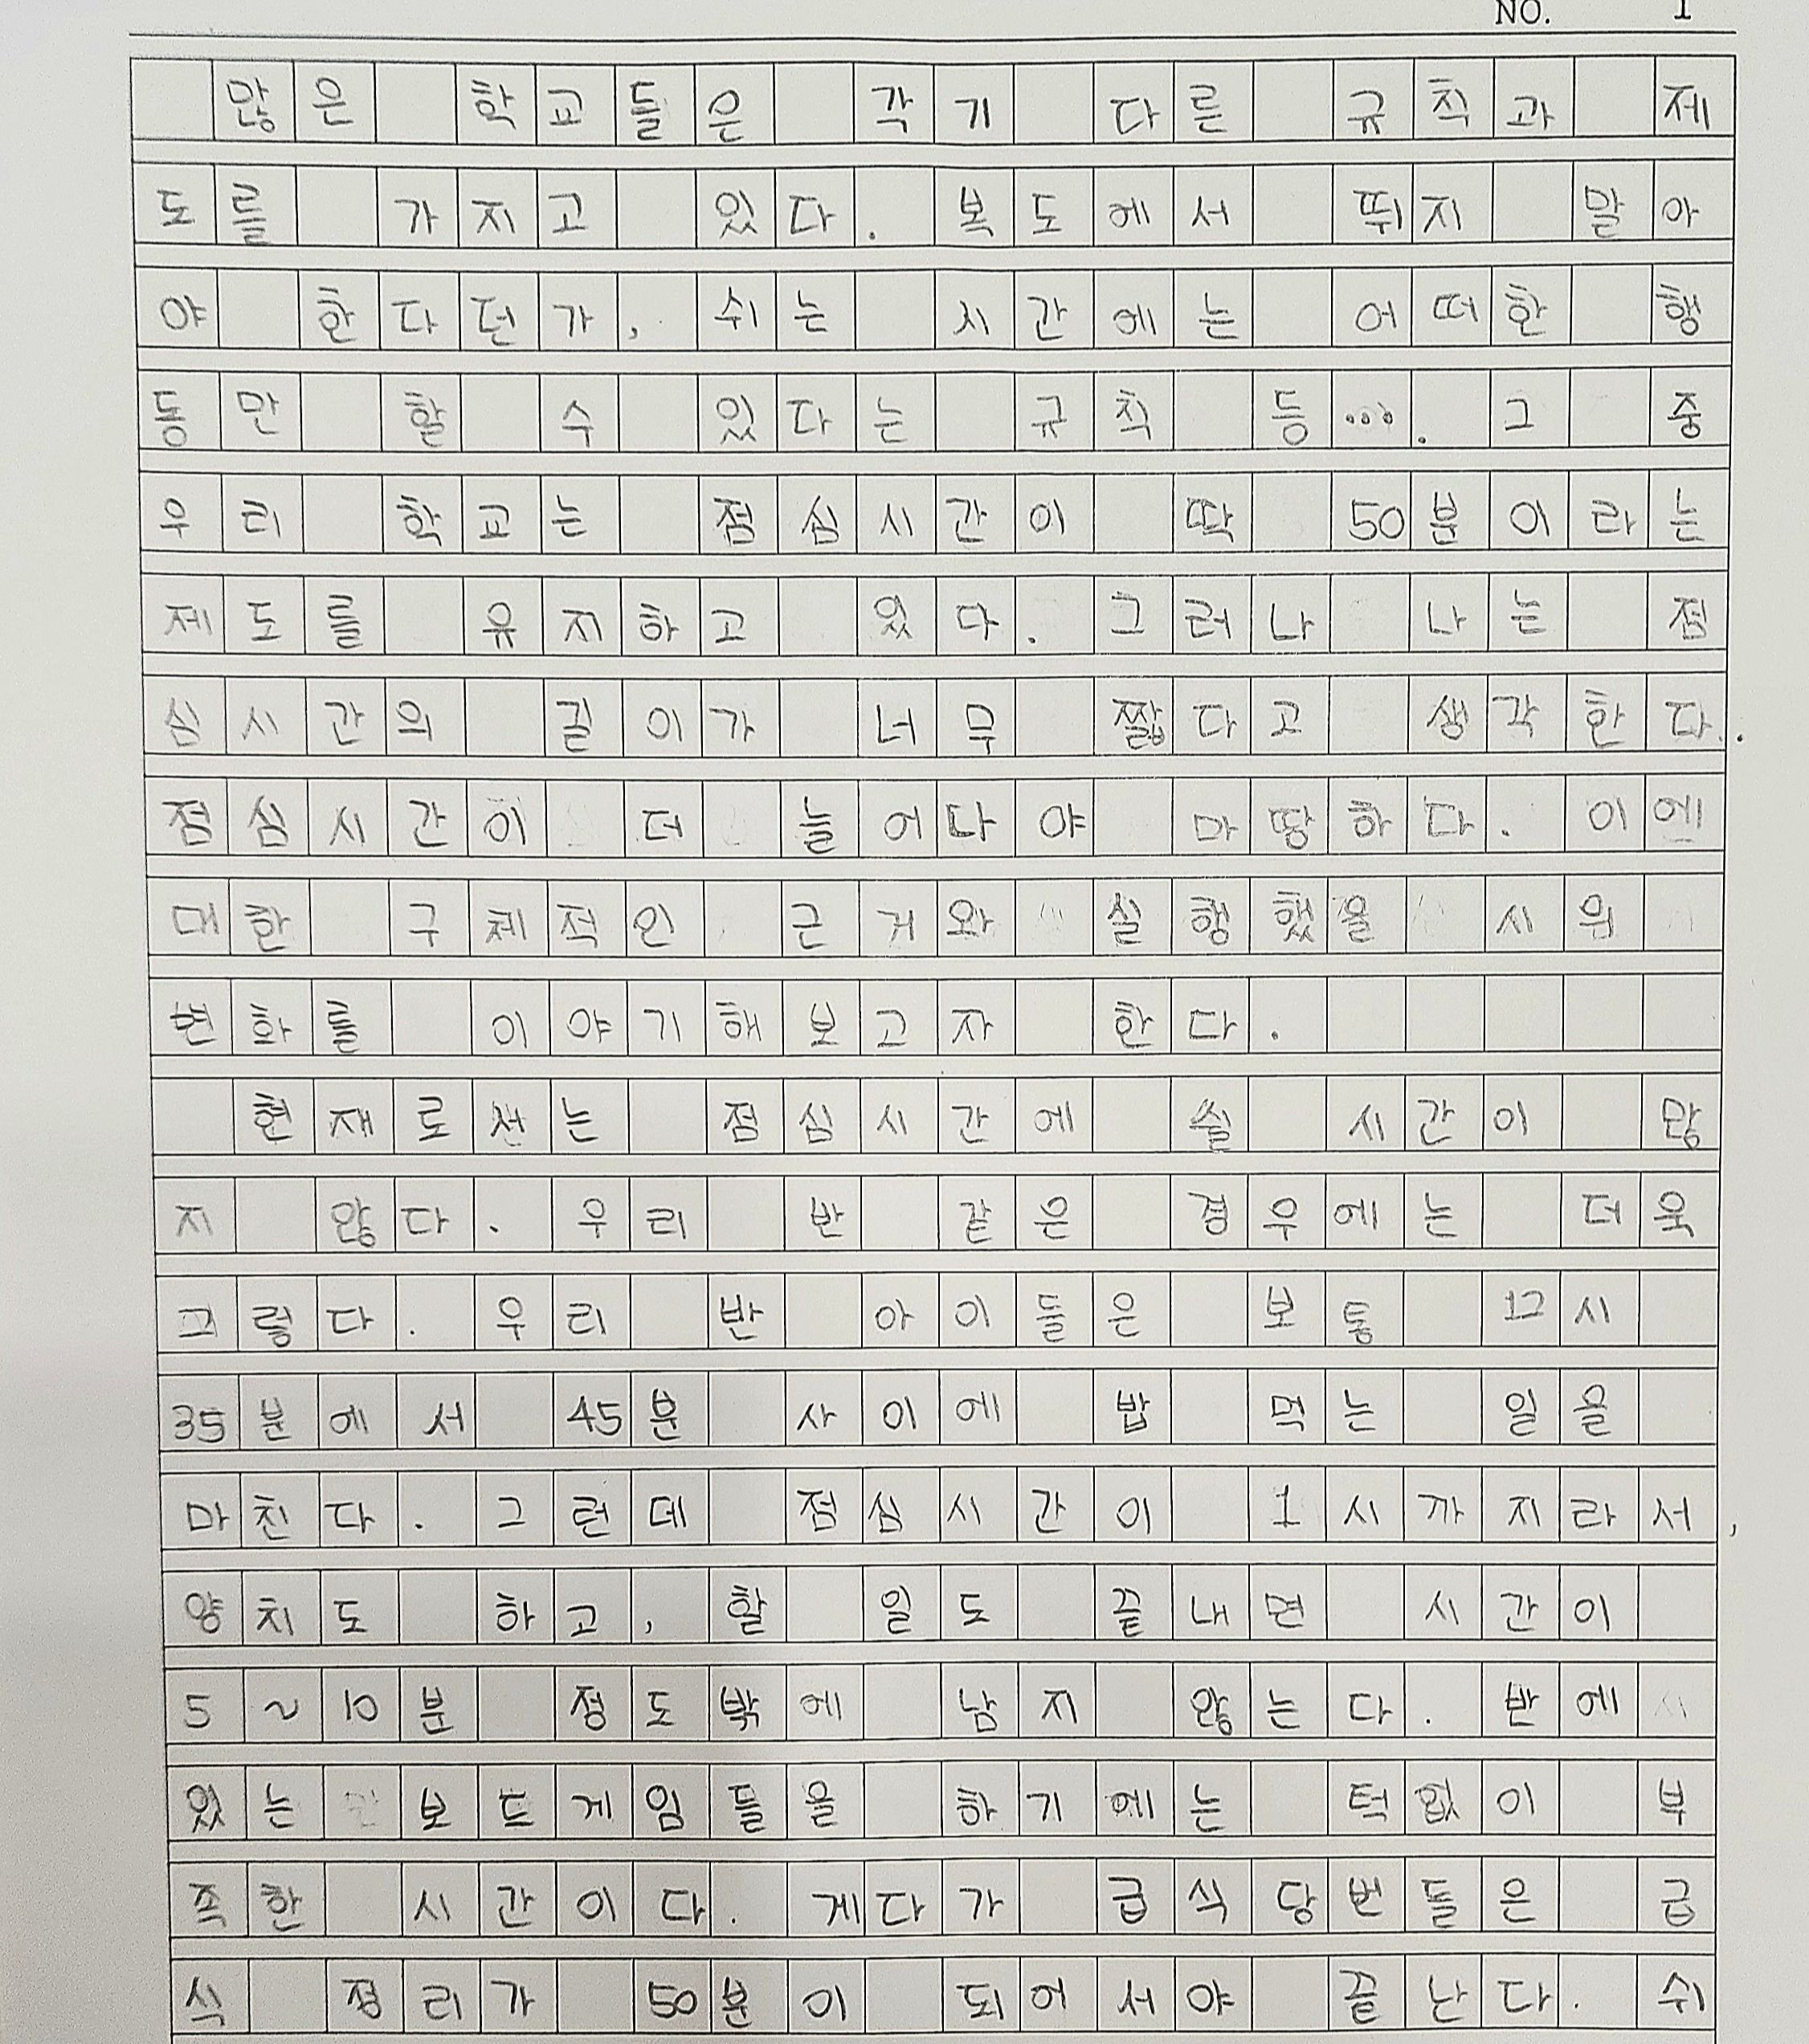 NO. 1
많은 학교들은 각기 다른 규칙과 제
도를 가지고 있다. 복도에서 뛰지 말아
야 한다던가, 쉬는 시간에는 어떠한 행
동만 할 수 있다는 규칙 등···. 그 중
우리 학교는 점심시간이 딱 50분이라는
제도를 유지하고 있다. 그러나 나는 점
심시간의 길이가 너무 짧다고 생각한다.
점심시간이 더 늘어나야 마땅하다. 이에
대한 구체적인 근거와 실행했을 시의
변화를 이야기해보고자 한다.
현재로선는 점심시간에 쓸 시간이 많
지 않다. 우리 반 같은 경우에는 더욱
그렇다. 우리 반 아이들은 보통 12시
35분에서 45분 사이에 밥 먹는 일을
마친다. 그런데 점심시간이 1시까지라서,
양치도 하고, 할 일도 끝내면 시간이
5~10분 정도밖에 남지 않는다. 반에
있는 보드게임들을 하기에는 턱없이 부
족한 시간이다. 게다가 급식당번들은 급
식 정리가 50분이 되어서야 끝난다. 쉬